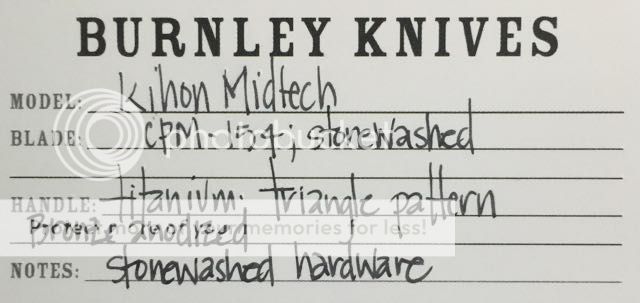 BURNLEY KNIVES
MODEL: Kihon Midtech
BLADE: CPM-154; stonewashed
HANDLE: titanium. triangle pattern
Bronze anodized
NOTES: stonewashed hardware
photobucket
memories for less!